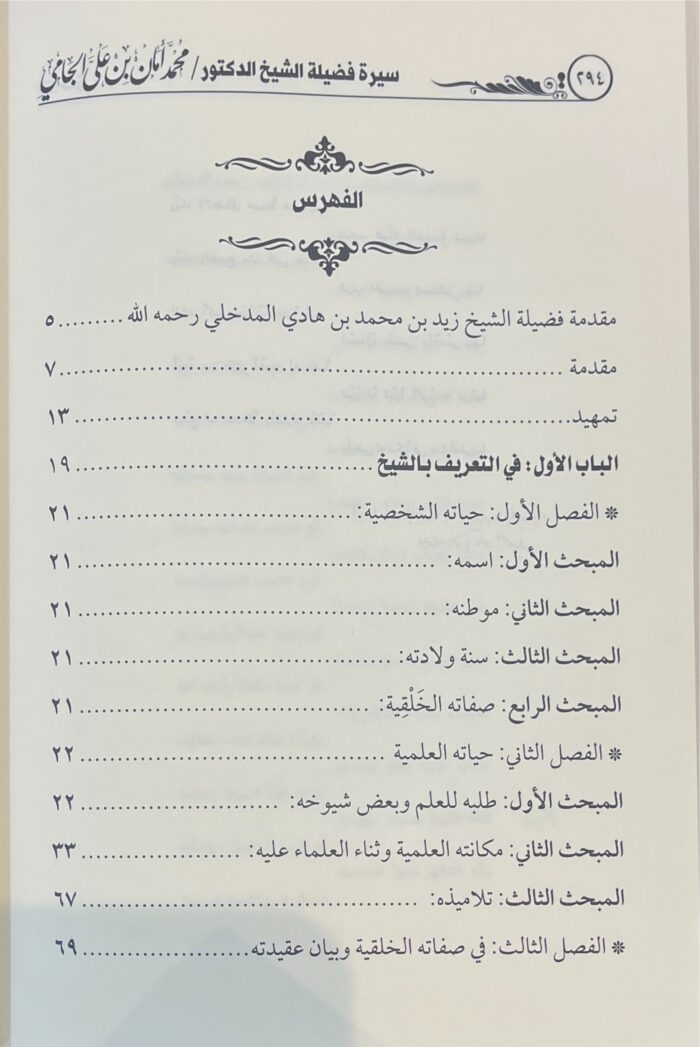 ٢٩٤ سيرة فضيلة الشيخ الدكتور / محمد أمان بن علي الجامي
الفهرس
مقدمة فضيلة الشيخ زيد بن محمد بن هادي المدخلي رحمه الله .........٥
مقدمة ..........................................................٧
تمهيد..........................................................١٣
الباب الأول: في التعريف بالشيخ..............................١٩
❊ الفصل الأول: حياته الشخصية: ................................٢١
المبحث الأول: اسمه: ..........................................٢١
المبحث الثاني: موطنه: ........................................٢١
المبحث الثالث: سنة ولادته: ...................................٢١
المبحث الرابع: صفاته الخَلْقِية: ................................٢١
❊ الفصل الثاني: حياته العلمية ..................................٢٢
المبحث الأول: طلبه للعلم وبعض شيوخه: .......................٢٢
المبحث الثاني: مكانته العلمية وثناء العلماء عليه: ..................٣٣
المبحث الثالث: تلاميذه: ......................................٦٧
❊ الفصل الثالث: في صفاته الخلقية وبيان عقيدته..................٦٩